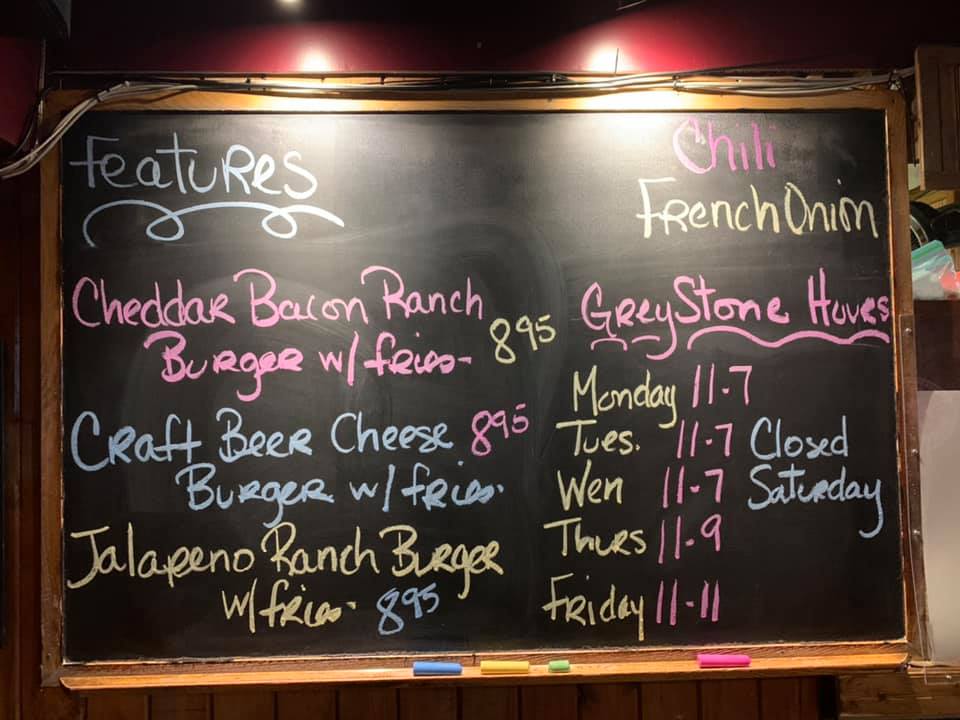 Features
Cheddar Bacon Ranch
Burger w/ fries 895
Craft Beer Cheese 895
Burger w/ fries
Jalapeno Ranch Burger
w/ fries 895
Chili
French Onion
GreyStone Hours
Monday 11-7
Tues. 11-7
Wen 11-7
Thurs 11-9
Friday 11-11
Closed
Saturday